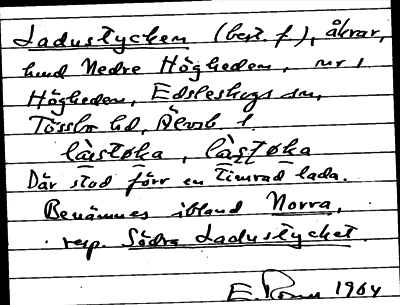 Ladustycken (best. f.), åkrar,
hmd Nedre Högheden, nr 1
Högheden, Edsleskogs sn,
Tössbo hd, Älvsb. l.
là̀støka, là̀støka
Där stod förr en timrad lada.
Benämnes ibland Norra,
resp. Södra Ladustycket.
E. 1964